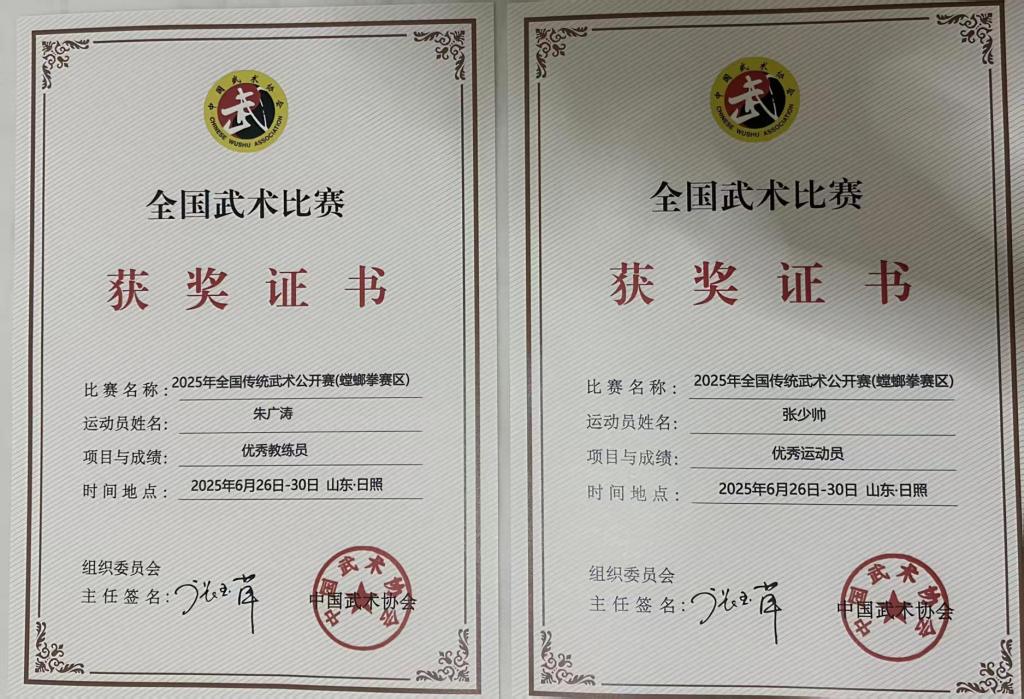 中国武术协会
CHINESE WUSHU ASSOCIATION
武
全国武术比赛
获奖证书
比赛名称:2025年全国传统武术公开赛(螳螂拳赛区)
运动员姓名:朱广涛
项目与成绩:优秀教练员
时间地点:2025年6月26日-30日 山东·日照
组织委员会
主任签名:
中国武术协会
中国武术协会
中国武术协会
CHINESE WUSHU ASSOCIATION
武
全国武术比赛
获奖证书
比赛名称:2025年全国传统武术公开赛(螳螂拳赛区)
运动员姓名:张少帅
项目与成绩:优秀运动员
时间地点:2025年6月26日-30日 山东·日照
组织委员会
主任签名:
中国武术协会
中国武术协会